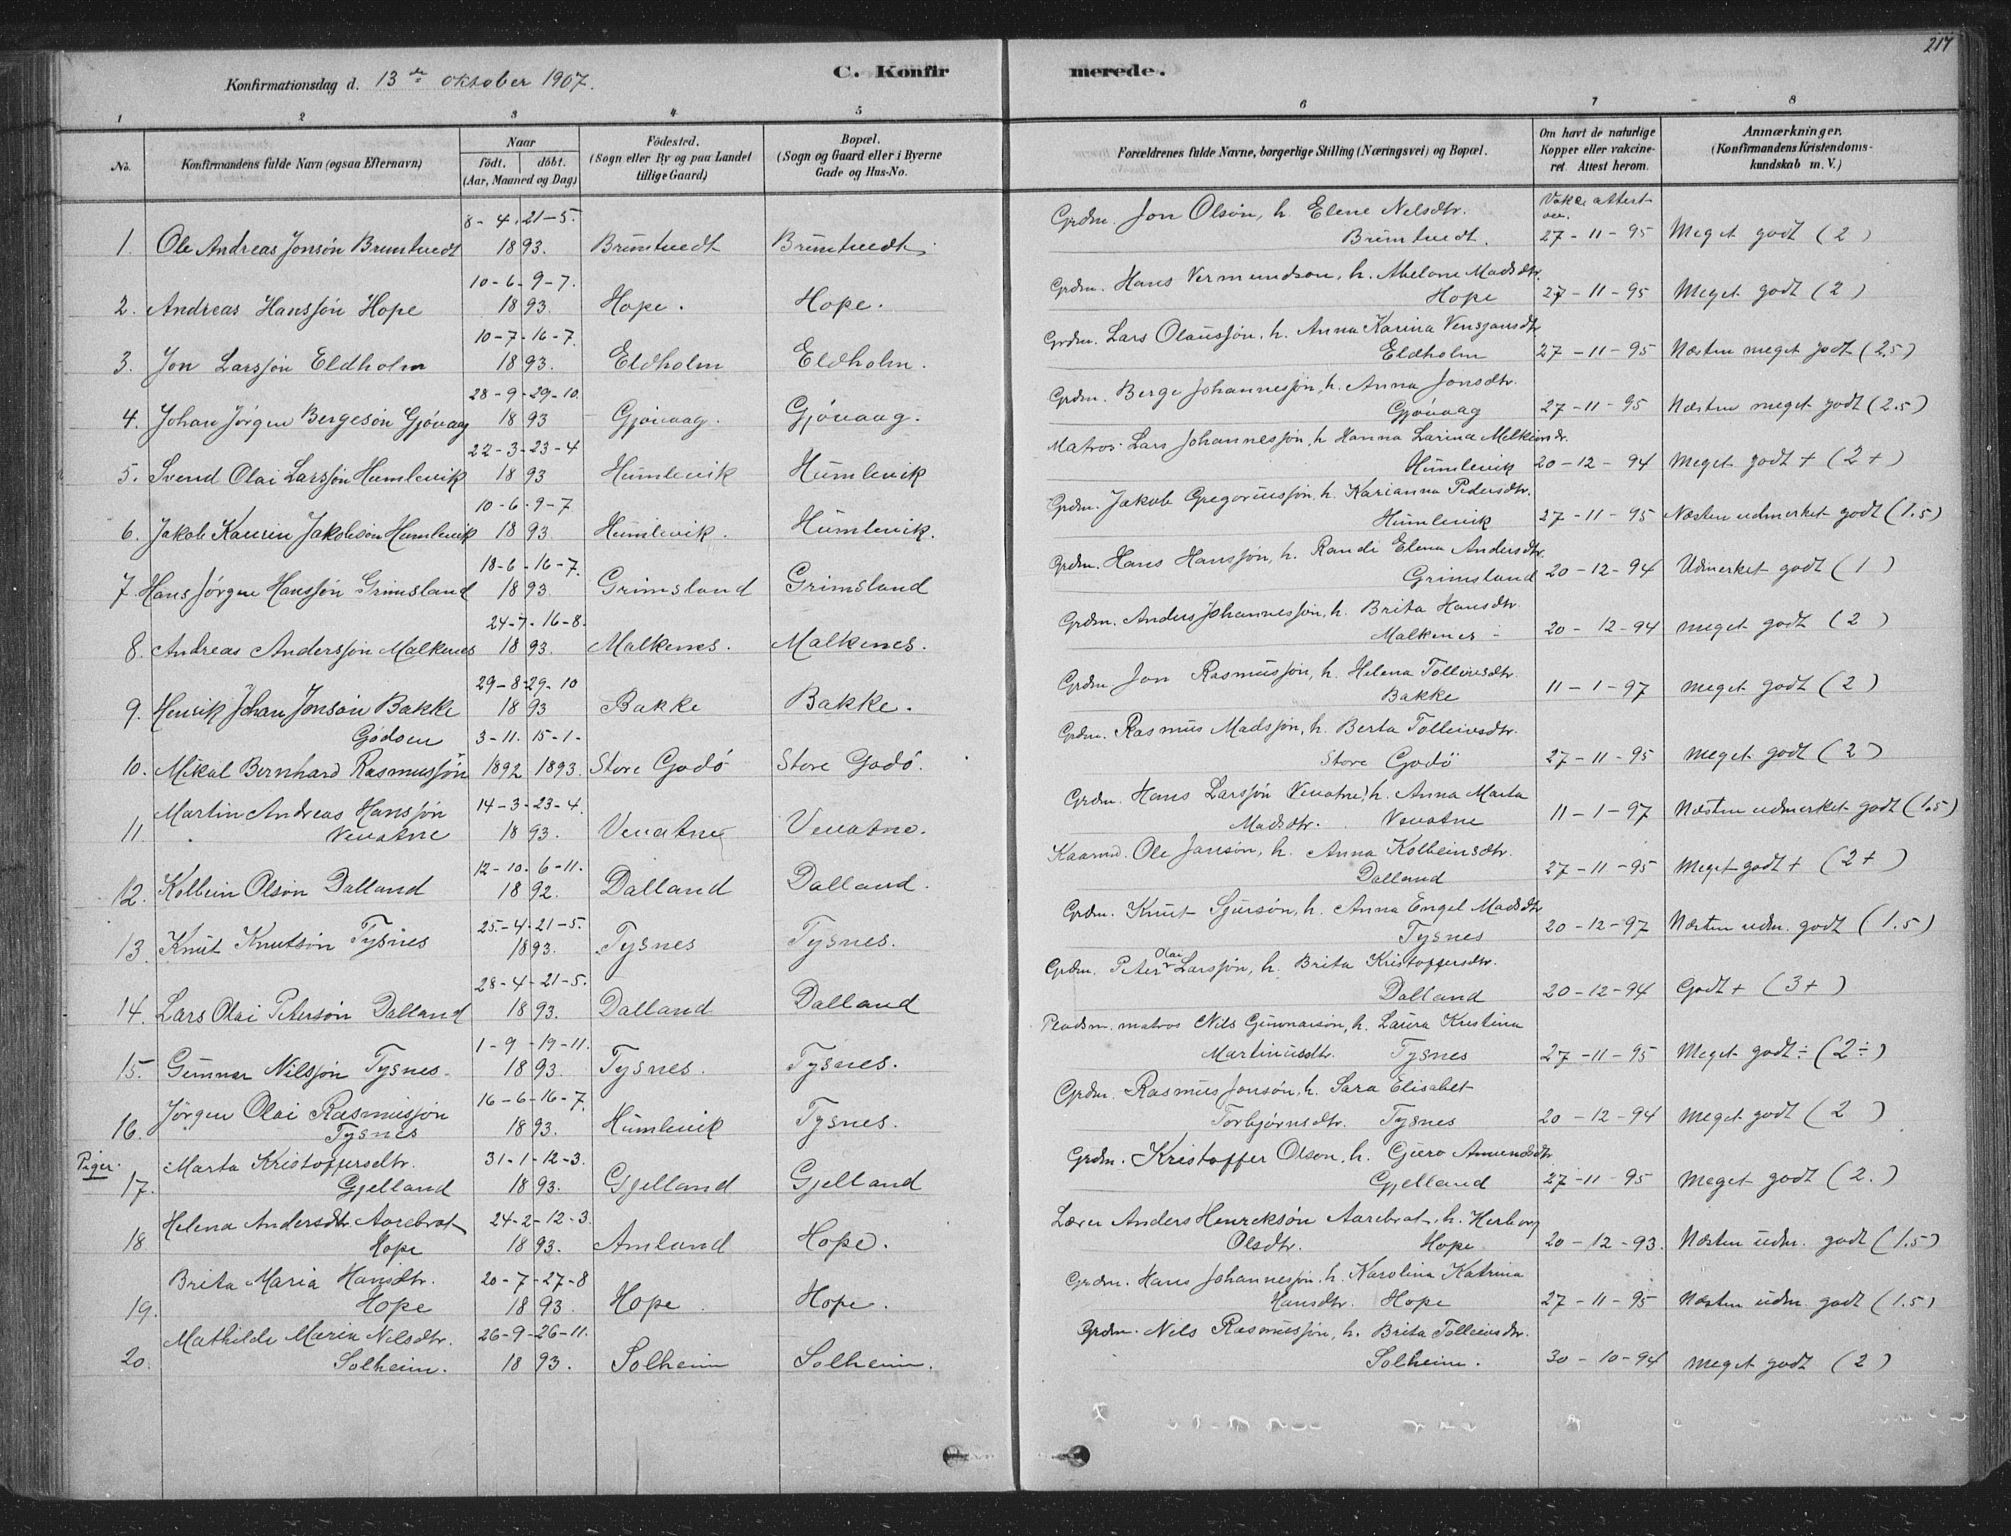 217
Konfirmationsdag d. 13de oktober 1907.
C. Konfirmerede.
1 2 3 4 5 6 7 8
No.
Konfirmandens fulde Navn (ogsaa Efternavn)
Naar
født. døbt.
(Aar, Maaned og Dag)
Födested.
(Sogn eller By og paa Landet
tillige Gaard)
Bopæl.
(Sogn og Gaard eller i Byerne
Gade og Hus-No.
Forældrenes fulde Navne, borgerlige Stilling (Næringsvei) og Bopæl.
Om havt de naturlige
Kopper eller vakcine-
ret Attest herom.
Anmærkninger.
(Konfirmandens Kristendoms-
kundskab m. V.)
8-4. 21-5. Grdm. Jon Olsøn, h. Elene Nelsdtr.
1. Ole Andreas Jonsøn Bruntvedt 1893. Bruntvedt Bruntvedt. Bruntvedt. 27-11-95 Meget godt (2)
10-6. 9-7. Grdm. Hans Vermundson, h. Abelone Madsdtr.
2. Andreas Hansson Hope 1893. Hope. Hope. Hope 27-11-95 Meget godt (2)
10-7. 16-7. Grdm. Lars Olausson, h. Anna Karina
3. Jon Larsson Eldholm 1893. Eldholm Eldholm. Eldholm 27-11-95 Næsten meget godt (2.5)
28-9-29-10. Grdm. Berge Johannesson, h. Anna Jonsdtr.
4. Johan Jørgen Bergesøn Gjøvaag 1893 Gjøvaag. Gjøvaag. Gjøvaag 27-11-95 Næsten meget godt (2.5)
22-3-23-4 Matros Lars Johannesson, h. Hanna Larina
5. Svend Olai Larsson Humlevik 1893 Humlevik Humlevik Humlevik 20-12-94 Meget godt + (2+)
10-6. 9-7 Grdm. Jakob Gregoriusson, h. Karianna Pedersdtr.
6. Jakob Kaurin Jakobson Humlevik 1893. Humlevik. Humlevik. Humlevik 27-11-95 Næsten udmerket godt (1.5)
18-6-16-7. Grdm. Hans Hansson, h. Randi Elena Andersdtr.
7. Hans Jørgen Hansson Grimsland 1893. Grimsland Grimsland Grimsland 20-12-94 Udmerket godt (1)
24-7. 16-8. Grdm. Anders Johannesson, h. Brita Hansdtr.
8. Andreas Andersson Malkenes 1893. Malkenes. Malkenes. Malkenes 20-12-94 meget godt (2)
29-8-29-10 Grdm Jon Rasmusson, h. Helena Tolleivsdtr.
9. Henrik Johan Jonsøn Bakke 1893 Bakke Bakke. Bakke 11-1-97 meget godt (2)
Godøen 3-11. 15-1- Grdm. Rasmus Madsson, h. Berta Tolleivsdtr.
10. Mikal Bernhard Rasmusson 1892 1893. Store Godø Store Godø. Store Godø 27-11-95 meget godt (2)
Martin Andreas Hansson 14-3-23-4. Grdm. Hans Larsson Vevatne, h. Anna Marta
11. Vevatne 1893. Vevatne Vevatne. Madsdtr. Vevatne 11-1-97 Næsten udmerket godt (1.5)
12-10. 6-11. Ole Jansøn, h. Anna Kolbeinsdtr.
12. Kolbein Olsøn Dalland 1892. Dalland Dalland. Dalland 27-11-95 Meget godt + (2+)
25-4-21-5. Grdm. Knut Sjursøn, h. Anna Engel Madsdtr
13. Knut Knutsøn Tysnes 1893. Tysnes Tysnes. Tysnes 20-12-97 Næsten udm. godt (1.5)
28-4-21-5. Grdm. Peter Olai Larsson, h. Brita Kristoffersdtr.
14. Lars Olai Petersøn Dalland 1893. Dalland Dalland Dalland 20-12-94 Godt + (3+)
1-9-19-11. matros Nils Gunnarson, h. Laura Kristina
15. Gunnar Nilsson Tysnes. 1893. Tysnes. Tysnes. Martinusdtr. Tysnes 27-11-95 Meget godt ÷ (2÷)
Jørgen Olai Rasmusson 16-6-16-7. Grdm. Rasmus Jonsøn, h. Sara Elisabet
16. Tysnes 1893. Humlevik Tysnes. Torbjørnsdtr. Tysnes 20-12-94 Meget godt (2)
Piger. Marta Kristoffersdtr. 31-1-12-3. Grdm. Kristoffer Olson, h. Guro Amundsdtr
17. Gjelland 1893. Gjelland Gjelland Gjelland 27-11-95 Meget godt (2.)
Helena Andersdtr. Aarebrot 24-2-12-3. Lærer Anders Henrcksøn Aarebrot, h. Herborg
18 Hope 1893. Amland Hope. Olsdtr. Hope 20-12-93. Næsten udm. godt (1.5)
Brita Maria Hansdtr. 20-7-27-8 Grdm. Hans Johannesson, h. Karolina Katrina
19. Hope 1893. Hope Hope. Hansdtr. Hope 27-11-95 Næsten udm. godt (1.5)
Mathilde Maria Nilsdtr. 26-9-26-11. Grdm. Nels Rasmusson, h. Brita Tolleivsdtr.
20. Solheim. 1893. Solheim Solheim. Solheim. 30-10-94 meget godt (2)